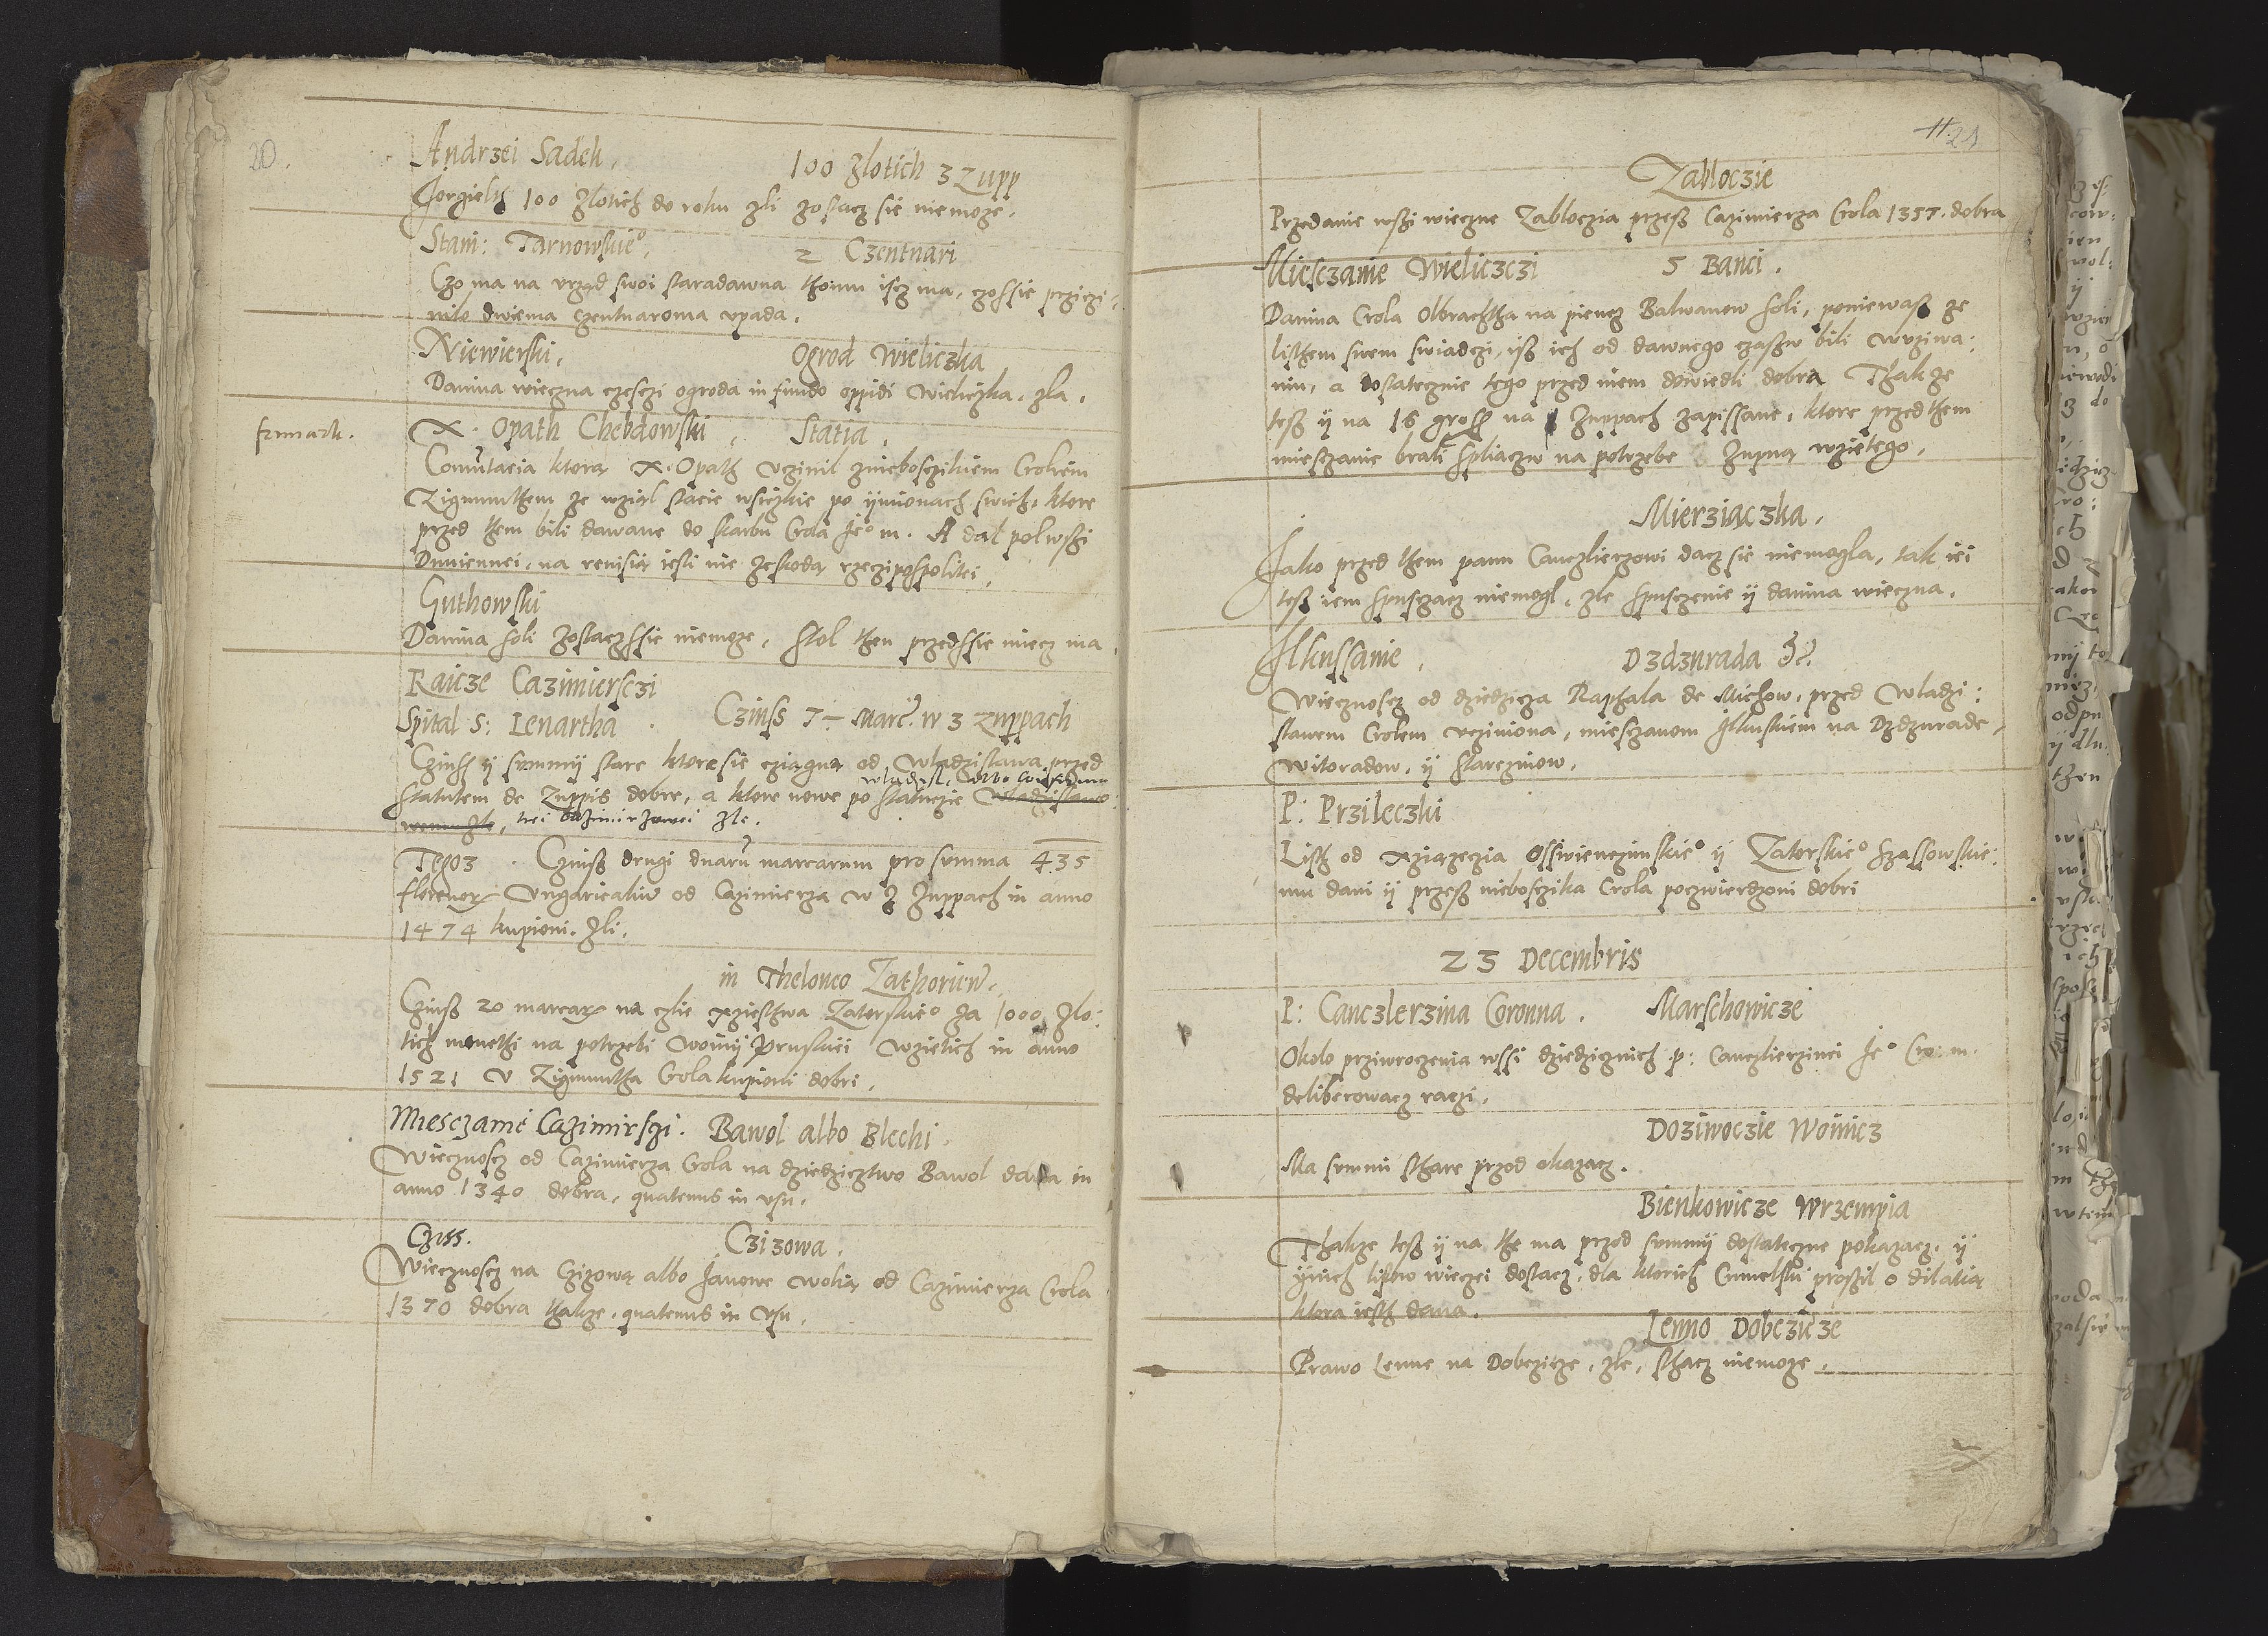 20.
Andrzei Sadek. 100 Zlotich z Zupp
Jorgielth 100 Zlotich do roku zli zostacz sie niemoze.
Stani: Tarnowskieo. 2 Czentnari
Czo ma na vrząd swoi staradawna thomu iscz ma, czo ssie prziczi:
nilo dwiema czentnaroma vpada.
Niewierski. Ogrod Wieliczka
Danina wieczna czesczi ogroda in fundo oppidi Wieliczka. zla.
frmark. X. Opath Chebdowski. Statia.
Comutacia ktorą X. Opath vczinil znieboszikiem Crolem
Zigmunthem ze wziąl stacie wsiczkie po ymionach swich, ktore
przed them bili dawane do skarbu Crola Jeo m. A dal polwszi
na renisią iesli nie zeskodą rzeczipospolitei.
Guthowski
Danina soli zostacz ssie niemoze. stol then przedssie miecz ma.
Raicze Cazimiersczi
Spital S: Lenartha. Czinss 7 Marc. w z zuppach
Czinss y summy stare ktore sie cziągną od Wladzislawa przed
wladisl, albo
statutem de Zuppis dobre, a ktore nowe po statucie Wladzislawo
wem zle, kei Cazimirzowei zle.
Tegoz. Czinss drugi duaru marcarum pro summa 435
florenor Ungaricaliu od Cazimierza w z Zuppach in anno
1474 kupioni. zli.
in Theloneo Zathorien.
Czinss 20 marcar na czlie xziesthwa Zatorskieo za 1000 zlo:
tich monethi na potrzebi woiny Pruskiei wzietich in anno
1521 v Zigmuntha Crola kupioni dobri.
Miesczanie Cazimirszi. Bawol albo Blechi.
Wiecznoscz od Cazimierza Crola na dziedzicztwo Bawol dana in
anno 1340 dobra, quatenus in vsu.
Cziss. Czizowa.
Wiecznoscz na Czizową albo Janowe wolią od Cazimierza Crola
1370 dobra thakze, quatenus in vsu.
11 21
Zabloczie
Przedanie wszi wieczne Zabloczia przesz Cazimierza Crola 1357. dobra
Miesczanie Wieliczczi 5 Banci.
Danina Crola Olbrachtha na piencz Balwanow soli, poniewasz ze
listhem swem swiadczi, isz ich od dawnego czassw bili wvziwa:
niu, a dostatecznie tego przed niem dowiedli dobra Thakze
tesz y na 16 grossz na Zuppach zapissane, ktore przed them
miesczanie brali spliaczw na potrzebe Zupną wzietego.
Mierziaczka.
Jako przed them panu Canczlierzowi dacz sie niemogla, tak iei
tesz iem spusczacz niemogl, zle spusczenie y danina wieczna.
Ilkussanie. Dzdzurada &c.
Wiecznoscz od dziedzicza Raphala de Michow, przed Wladzi:
slawem Crolem vcziniona, miesczanom Ilkuskiem na Dzdzurade,
Witoradow, y Starczinow.
P: Przileczki
Listh od xziązeczia Osswienczimskieo y Zatorskieo Szassowskie:
mu dani y przesz nieboszika Crola poczwierdzoni dobri
23 Decembris
P: Canczlerzina Coronna. Marschowicze
Okolo prziwroczenia wssi dziedzicznich p: Canczlierzinei Jeo Cro: m.
deliberowacz raczi.
Doziwoczie Woinicz
Ma summi sthare przod okazacz.
Bienkowicze Wrzempia
Thakze tesz y na the ma przod summy dostateczne pokazacz. y
ynich listow wieczei dostacz, dla ktorich Cumelski proszil o dilatią
ktora iesth dana.
Lenno Dobczicze
Prawo Lenne na Dobczicze, zle, sthacz niemoze.